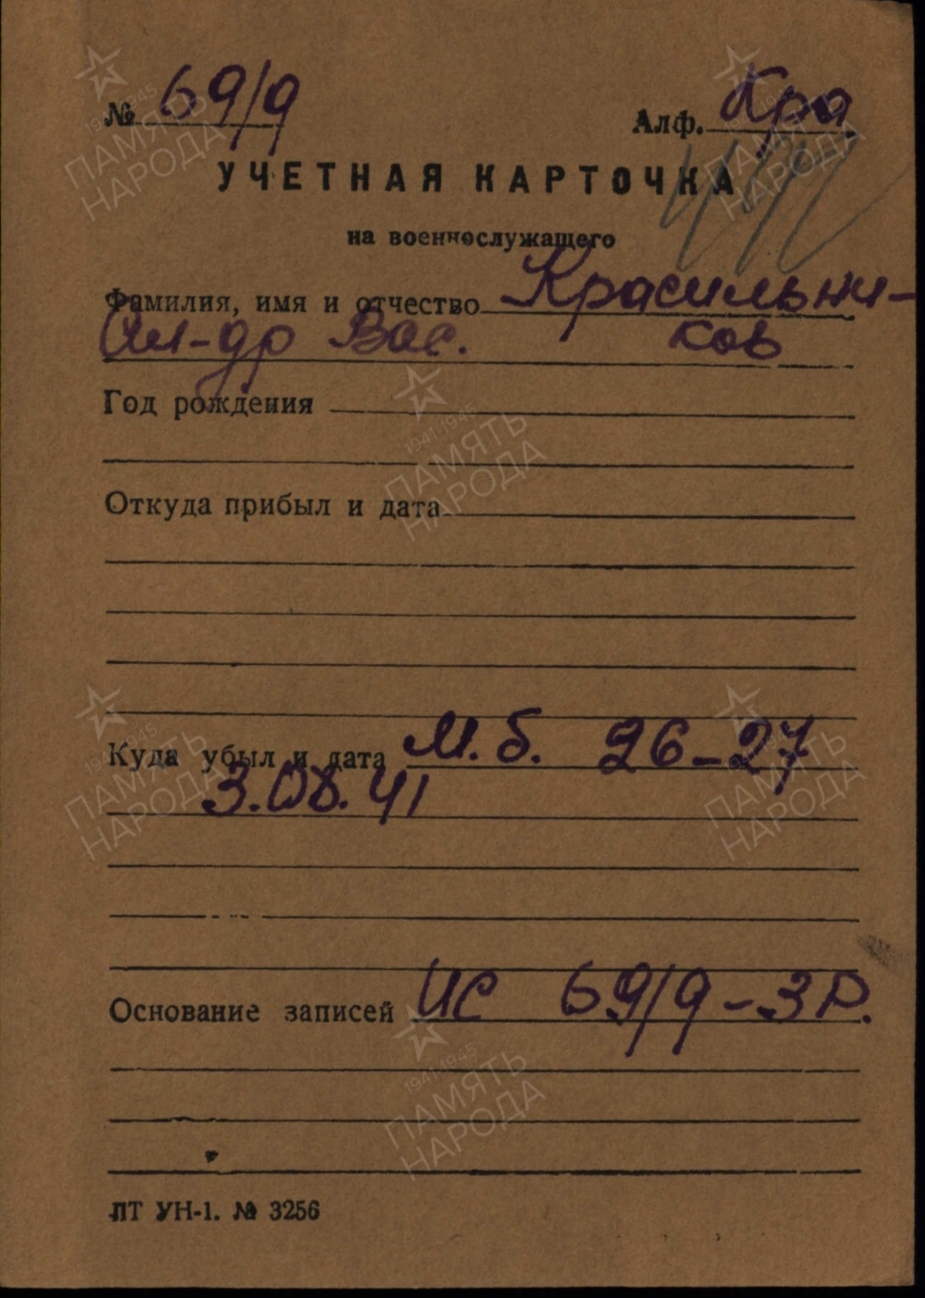 № 69/9 Алф. Кра
УЧЕТНАЯ КАРТОЧКА
на военнослужащего
Фамилия, имя и отчество Красильни-
Ал-др Вас. ков
Год рождения
Откуда прибыл и дата
Куда убыл и дата М.б. 26-27
3.08.41
Основание записей ИС 69/9-3р.
ЛТ УН-1. № 3256
1941-1945
ПАМЯТЬ
НАРОДА
1941-1945
ПАМЯТЬ
НАРОДА
1941-1945
ПАМЯТЬ
НАРОДА
1941-1945
ПАМЯТЬ
НАРОДА
1941-1945
ПАМЯТЬ
НАРОДА
1941-1945
ПАМЯТЬ
НАРОДА